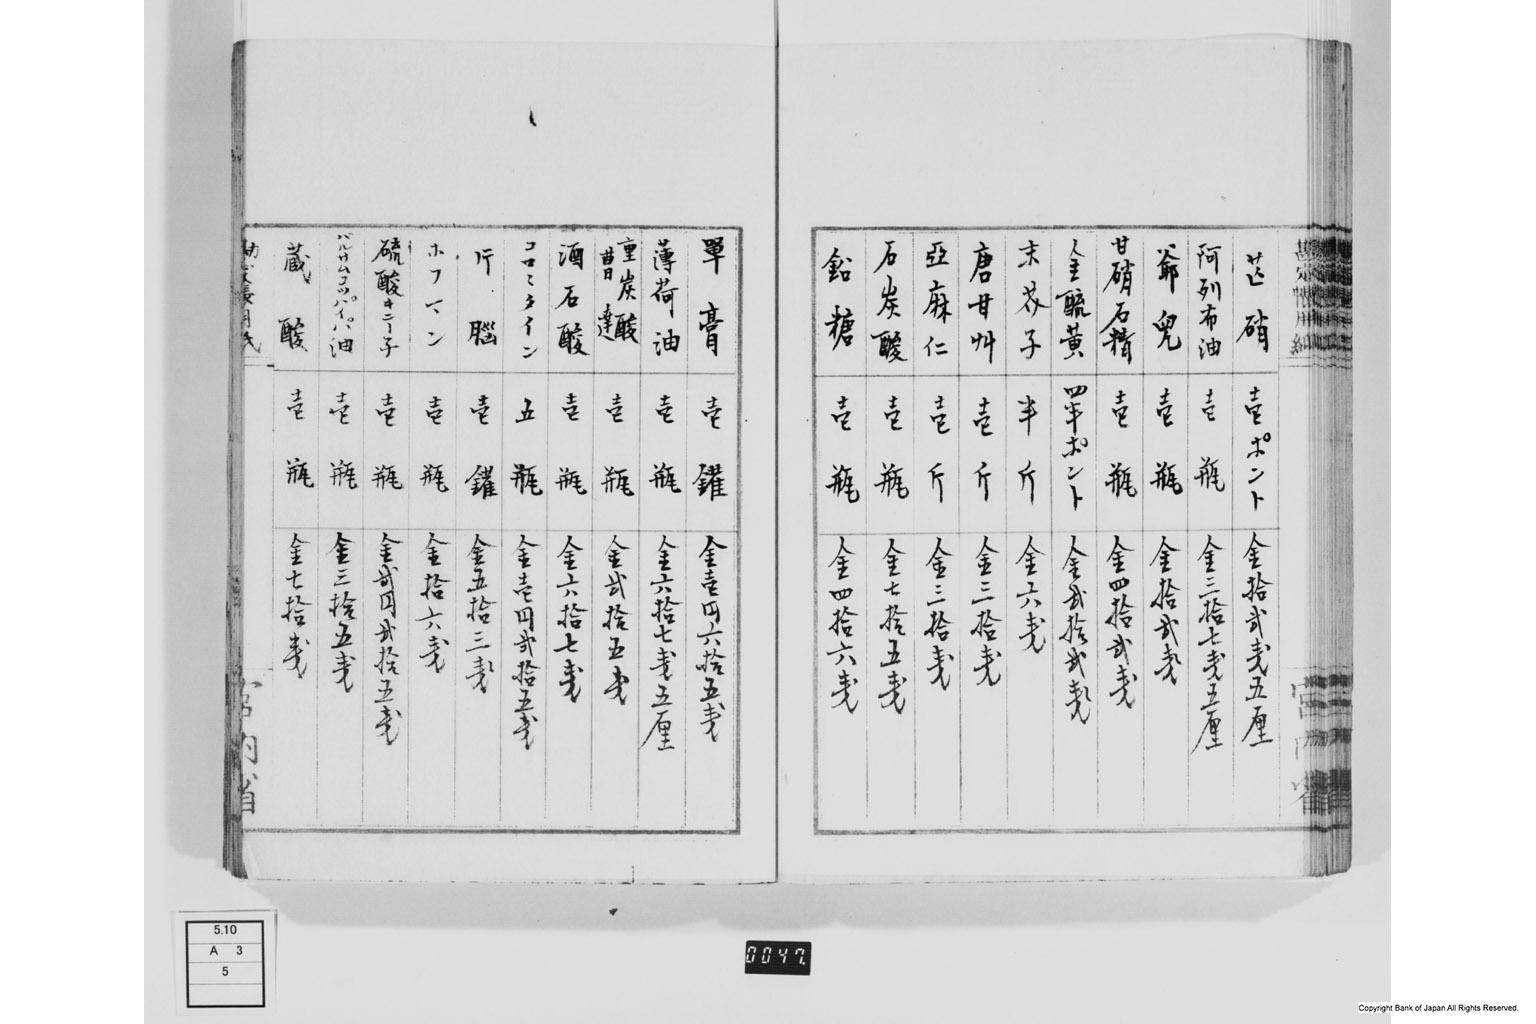 芒硝 壱ポント 金拾弐銭五厘
阿列布油 壱瓶 金三拾七銭五厘
爺兒 壱瓶 金拾弐銭
甘硝石精 壱瓶 金四拾弐銭
金硫黄 四半ポント 金弐拾弐銭
末芥子 半斤 金六銭
唐甘艸 壱斤 金三拾銭
亞麻仁 壱斤 金三拾銭
石炭酸 壱瓶 金七拾五銭
鉛糖 壱瓶 金四拾六銭
單膏 壱鑵 金壱円六拾五銭
薄荷油 壱瓶 金六拾七銭五厘
重炭酸曹達 壱瓶 金弐拾五銭
酒石酸 壱瓶 金六拾七銭
コロミタイン 五瓶 金壱円弐拾五銭
片腦 壱鑵 金五拾三銭
ホフマン 壱瓶 金拾六銭
硫酸キニー子 壱瓶 金弐円弐拾五銭
バルサムコッパイバ油 壱瓶 金三拾五銭
蔵酸 壱瓶 金七拾銭
宮内省
5.10
A 3
5
0047.
Copyright Bank of Japan All Rights Reserved.